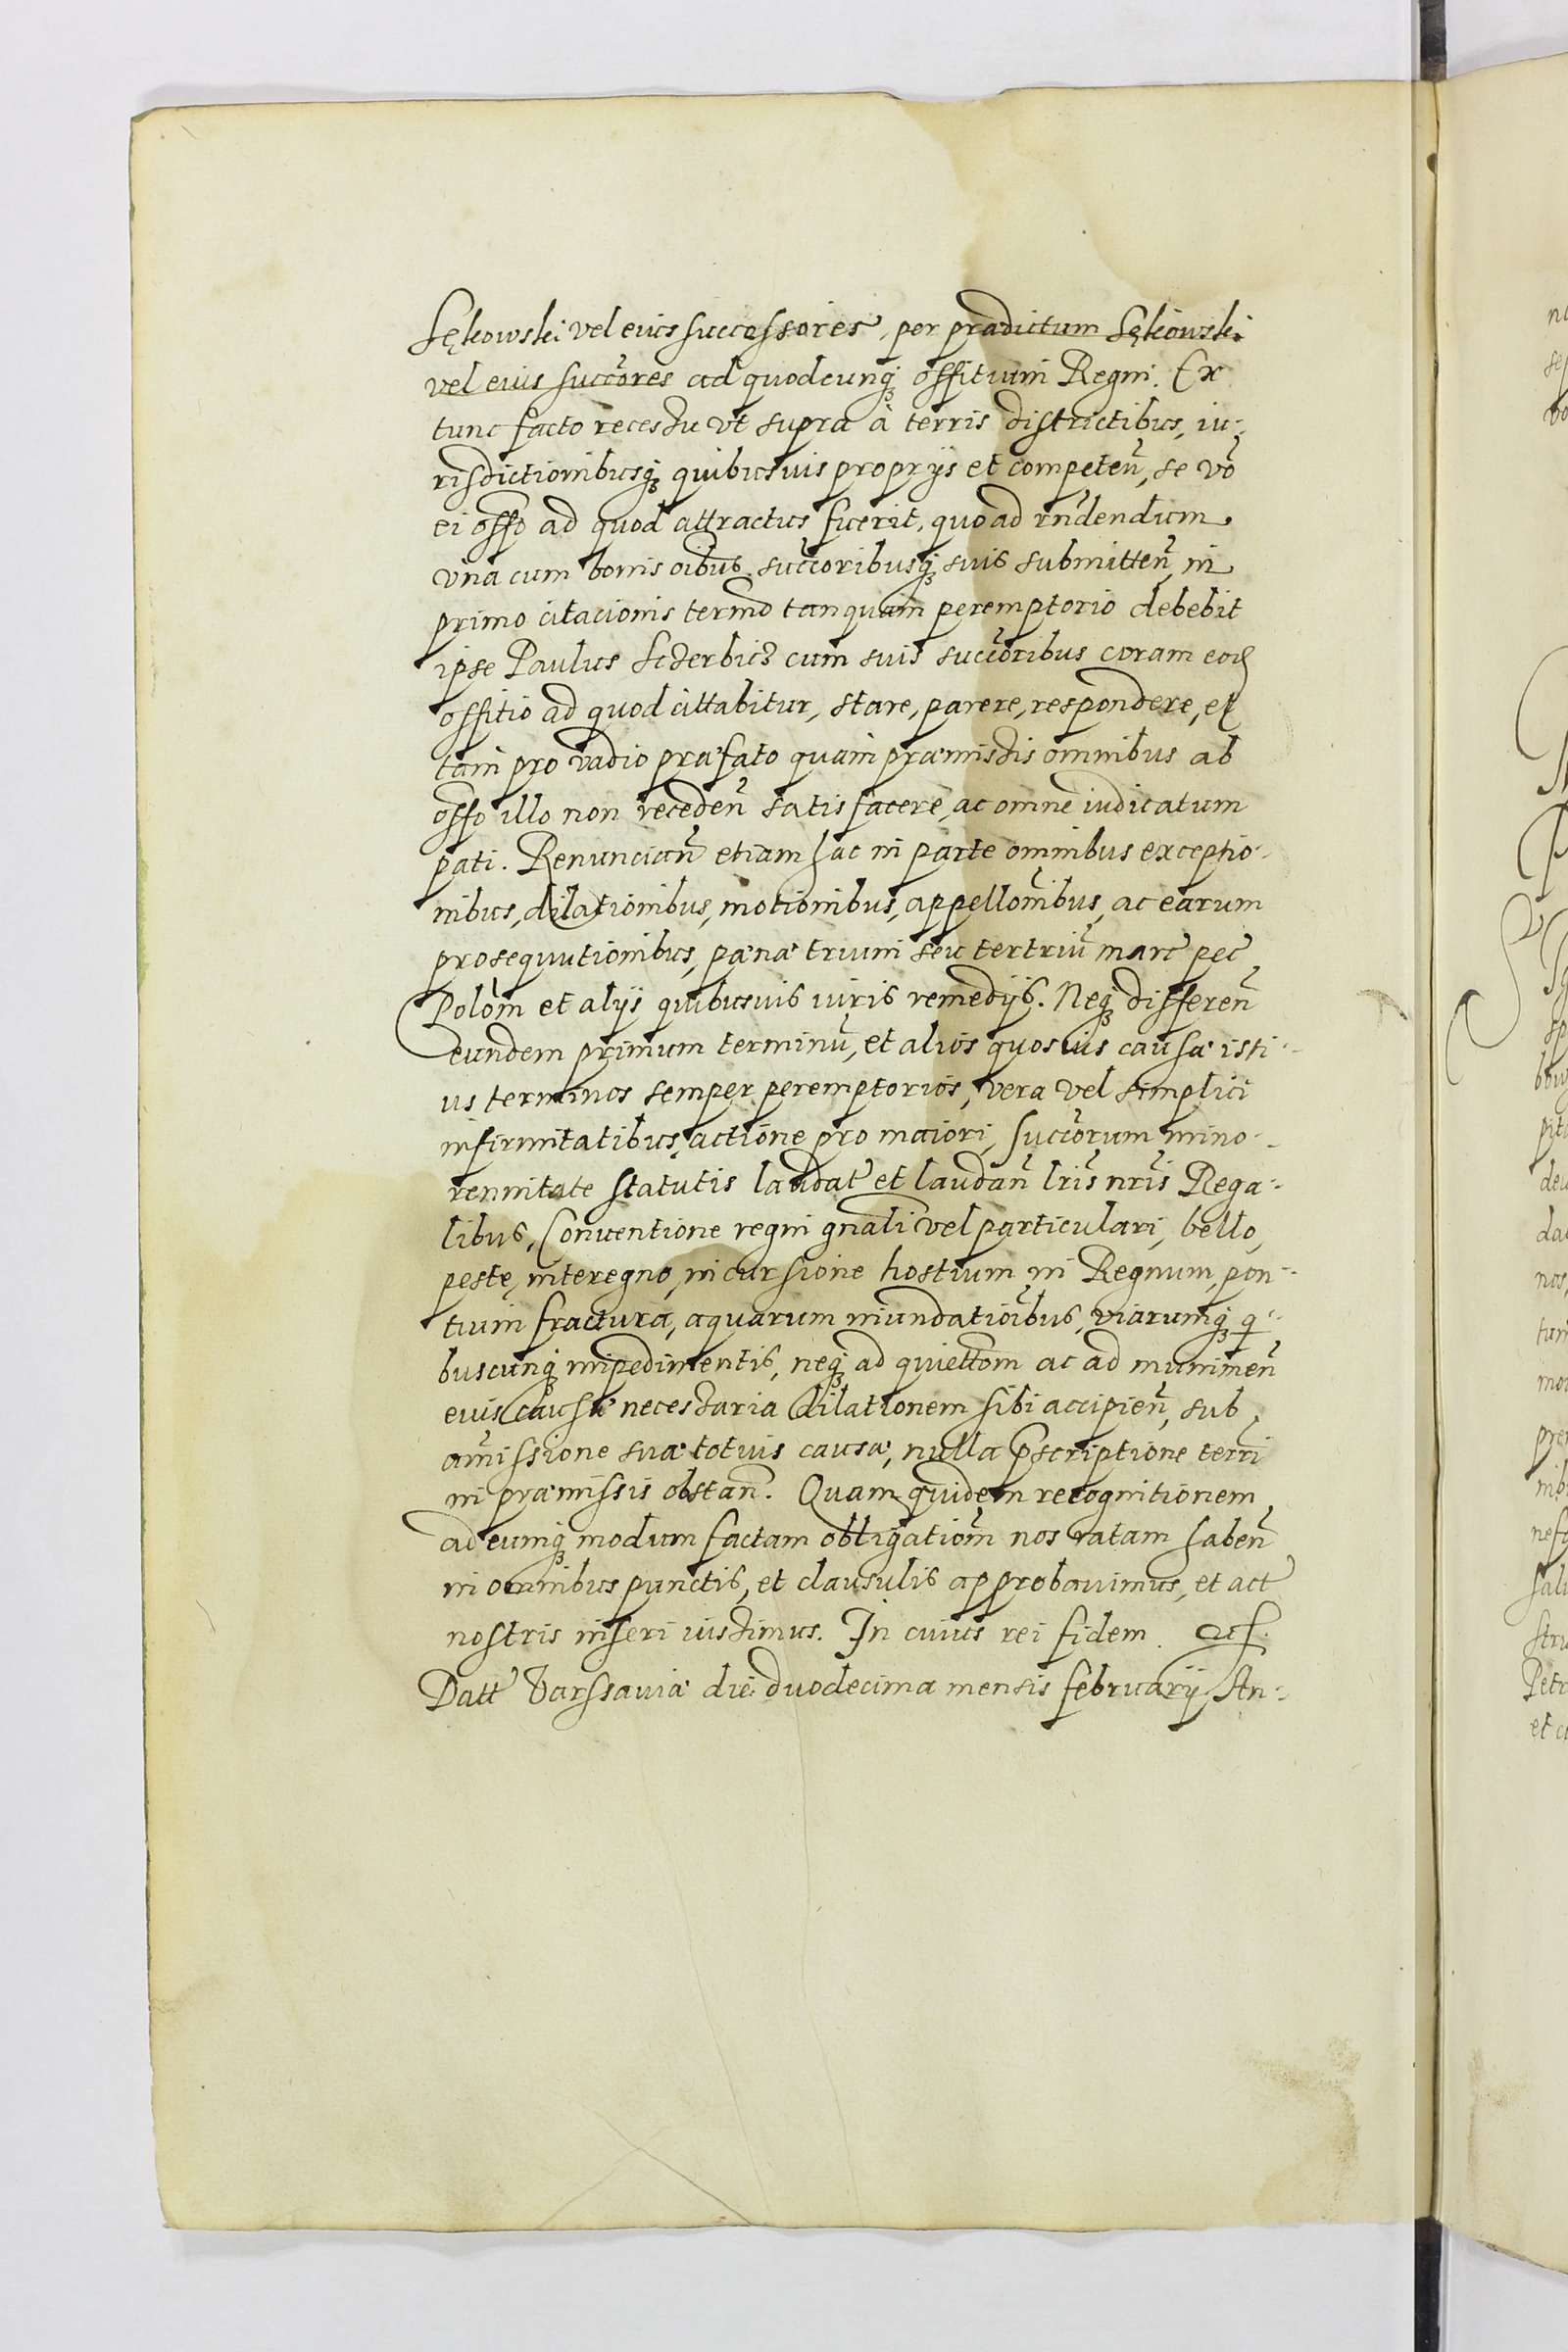 Sękowski vel eius successores, per prædictum Sękowski
vel eius succ̃ores ad quodcunq́ꝫ offitium Regni. Ex
tunc facto recessu vt supra à terris districtibus, iu-
risdictionibusq́ꝫ quibusuis proprijs et competeñ, se vo̅
ei offo ad quod attractus fuerit, quoad rñdendum
vna cum bonis oibus succ̃oribusq́ꝫ suis submitteñ, in
primo citacionis termo tanquam peremptorio debebit
ipse Paulus Sczerbicz cum suis succ̃oribus coram eod
offitio ad quod cittabitur, stare, parere, respondere, et
tam pro vadio præfato quam præmissis omnibus ab
offo illo non recedeñ satisfacere, ac omne iudicatum
pati. Renunciañ etiam hac in parte omnibus exceptio-
nibus, dilationibus, motionibus, appellom̃ibus, ac earum
prosequutionibus, pæna trium seu tertriũ marc pec
Polom et alijs quibusuis iuris remedijs. Neq́ꝫ differeñ
eundem primum terminũ, et alios quosuis causæ isti-
us terminos semper peremptorios, vera vel simplici
infirmitatibus, actione pro maiori, succ̃orum mino-
rennitate statutis laudat et laudañ lris̃ nris̃ Rega-
libus, Conuentione regni gnali vel particulari, bello,
peste, interegno, incursione hostium in Regnum, pon-
tium fractura, aquarum inundatioĩbus, viarumq́ꝫ q-
buscunq́ꝫ impedimentis, neq́ꝫ ad quiettom ac ad munimeñ
euis causæ necessaria dilationem sibi accipieñ, sub
amissione suæ totius causæ, nulla p̱scriptione terri
in præmissis obstañ. Quam quidem recognitionem
ad eumq́ꝫ modum factam obligatiom̃ nos ratam habeñ
in omnibus punctis, et clausulis approbauimus, et act
nostris inseri iussimus. In cuius rei fidem. etc.
Datt Varssauiæ die duodecima mensis februarij An-